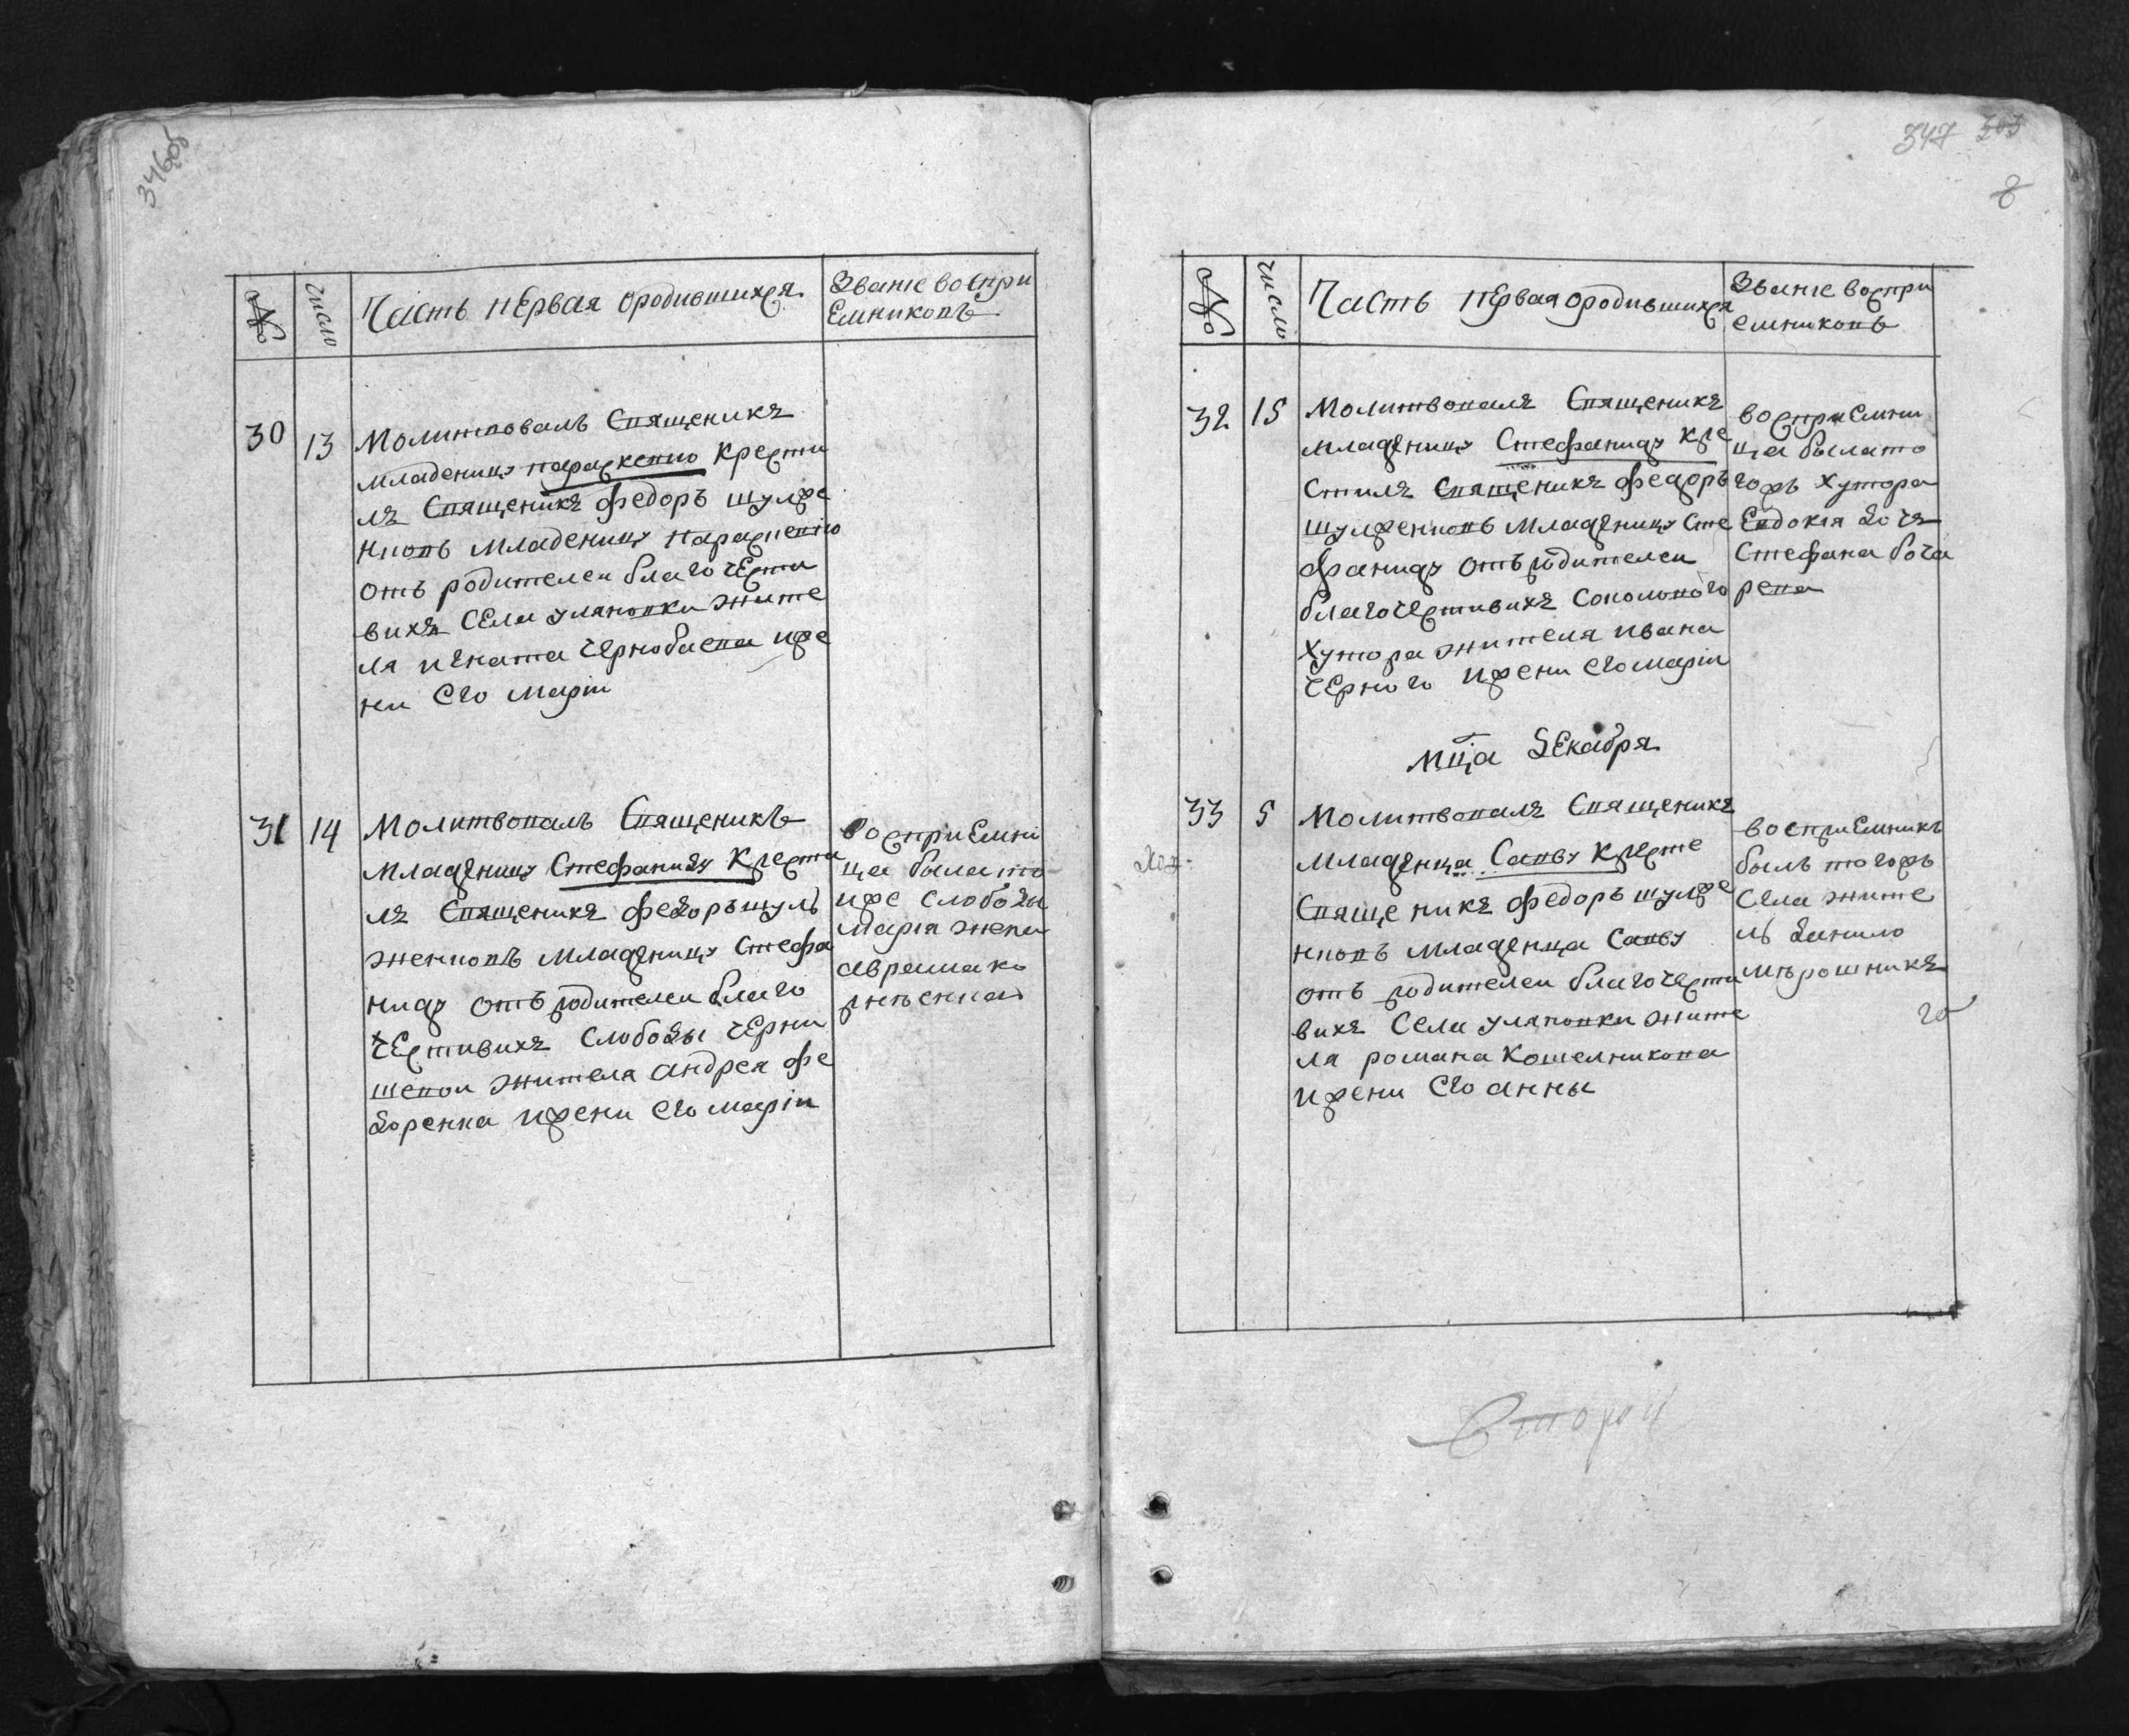 346об
№ число Часть первая ородившихся Званіе воспри
емниковъ
30 13 Молитвовалъ Священикъ
младеницу параскевию крести
лъ Священикъ федоръ шулже
нковъ младеницу параскевію
отъ родителеи благочести
вихъ села улановки жите
ля игната чернобаева иже
ни его маріи
31 14 Молитвовалъ Священикъ
младеницу Стефаниду крести
лъ Священикъ федоръ шуль
женковъ младеницу Стефа
ниду отъ родителеи благо
честивихъ слободы черни
шевои жителя андрея фе
доренка ижени его маріи
восприемни
ца была то
иже слободы
марія жена
авраама ко
347 303
8
№ число Часть первая ородившихся Званіе воспри
емниковъ
32 15 Молитвовалъ Священикъ
младеницу Стефаниду кре
стилъ Священикъ федоръ
шулженковъ младеницу Сте
фаниду отъ родителеи
благочестивихъ Соколового
хутора жителя ивана
черного ижени его маріи
восприемни
ца была то
гожъ хутора
Евдокія дочь
Стефана боча
рева
мца Декабря
33 5 Молитвовалъ Священикъ
младенца Савву крести
Священикъ федоръ шулже
нковъ младенца Савву
отъ родителеи благочести
вихъ села улановки жите
ля романа кошелникова
ижени его анны
восприемникъ
былъ тогожъ
села жите
ль данило
мѣрошникъ
го
Второй